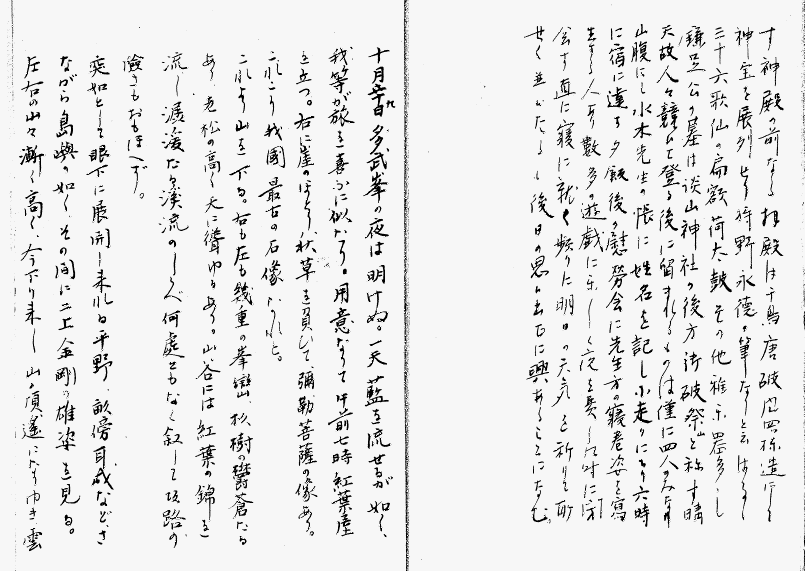 す神殿の前なる拝殿は千鳥唐破風四孫造にして
神宝を展列せり狩野永徳の筆なりと云はるゝ
三十六歌仙の扁額荷太鼓その他雅楽器多し
鎌足公の墓は談山神社の後方御破裂山と称す晴
天故人々競ひて登る後に留まれるものは僅に四人のみなり
山腹にして水木先生の帳に姓名を記し小走りにもり六時
に宿に達す夕飯後の慰労会に先生方の寝巻姿を写
生する人あり数多の遊戯に楽しく夜を更し九時に
会す直に寝に就く頻りに明日の天気を祈りて
せく並びたるも後日の思ひ出でに興あることになむ。
十月廿九日多武峯の夜は明けぬ。一天藍を流せるが如く、
我等が旅を喜ぶに似たり。用意なりて午前七時紅葉屋
を立つ。右に崖のほとり秋草を負ひて、弥勒菩薩の像あり。
これこそ我国最古の石像なりれと。
これより山を下る。右も左も幾重の峯巒、杉樹の鬱蒼たる
あり老松の高く天に聳ゆるあり。山谷には紅葉の錦を
流し潺湲たる渓流のしらべ何処ともなく叙して坂路の
険さもおもほへず。
突如として眼下に展開し来れる平野、畝傍耳成などさ
ながら島嶼の如く、その間に二上金剛の雄姿を見る。
左右の山々漸く高く、今下り来し山の頂遙になりゆき雲